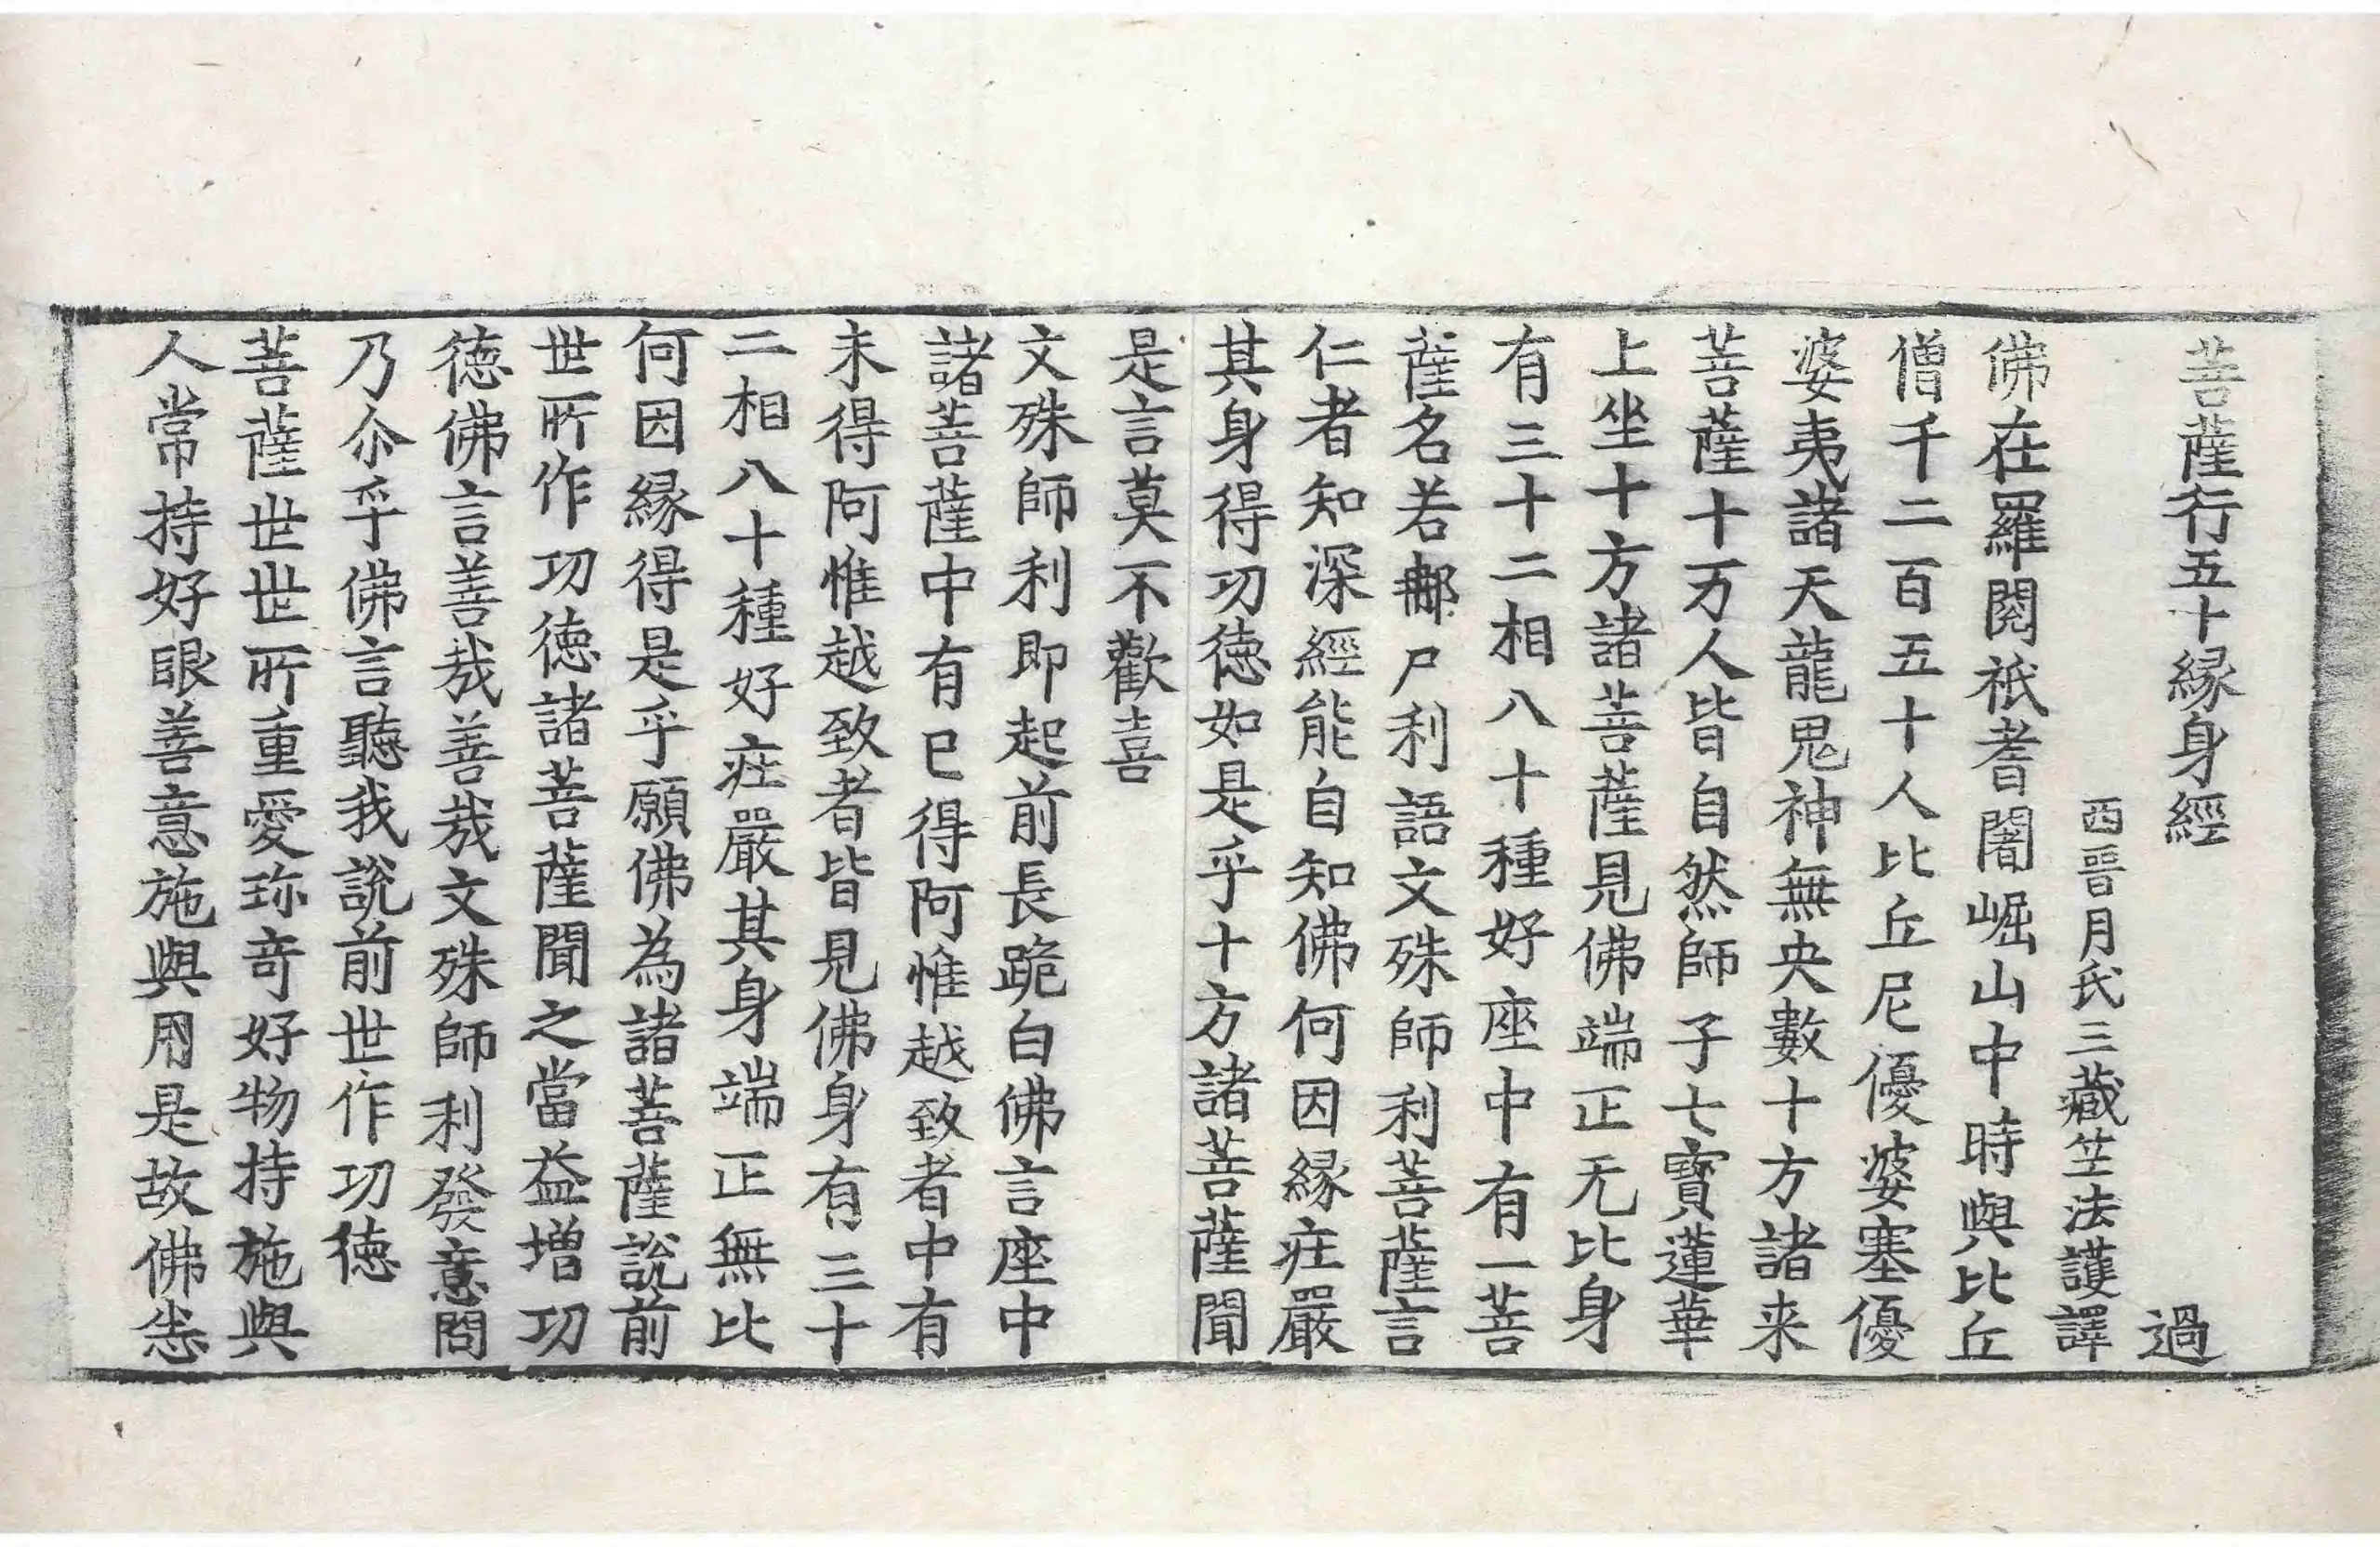 菩薩行五十縁身經　過
西晉月氏三藏竺法護譯
佛在羅閱祇耆闍崛山中時與比丘
僧千二百五十人比丘尼優婆塞優
婆夷諸天龍鬼神無央數十方諸来
菩薩十万人皆自然師子七寶蓮華
上坐十方諸菩薩見佛端正无比身
有三十二相八十種好座中有一菩
薩名若郍尸利語文殊師利菩薩言
仁者知深經能自知佛何因縁疘嚴
其身得功徳如是乎十方諸菩薩聞
是言莫不歡喜
文殊師利即起前長跪白佛言座中
諸菩薩中有已得阿惟越致者中有
未得阿惟越致者皆見佛身有三十
二相八十種好疘嚴其身端正無比
何因縁得是乎願佛為諸菩薩說前
世所作功徳諸菩薩聞之當益增功
徳佛言善哉善哉文殊師利發意問
乃尒乎佛言聽我說前世作功徳
菩薩世世所重愛珎奇好物持施與
人常持好眼善意施與用是故佛恙